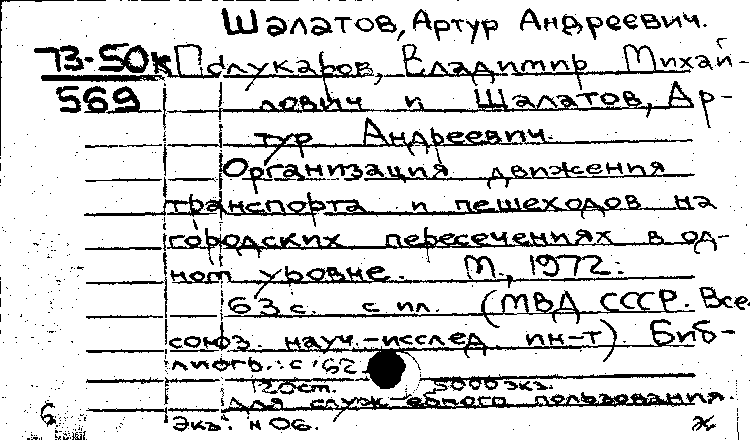 Шалатов, Артур Андреевич.
73-50к Полукаров, Владимир Михай-
569 лович и Шалатов, Ар-
тур Андреевич.
Организация движения
транспорта и пешеходов на
городских пересечениях в од-
ном уровне. М., 1972.
63 с. с ил. (МВД СССР. Все
союз. науч.-исслед. ин-т) Биб-
лиогр.: с. 62.
20 ст. 5000 экз.
Для служебного пользования.
6 Экз. № 06. ж